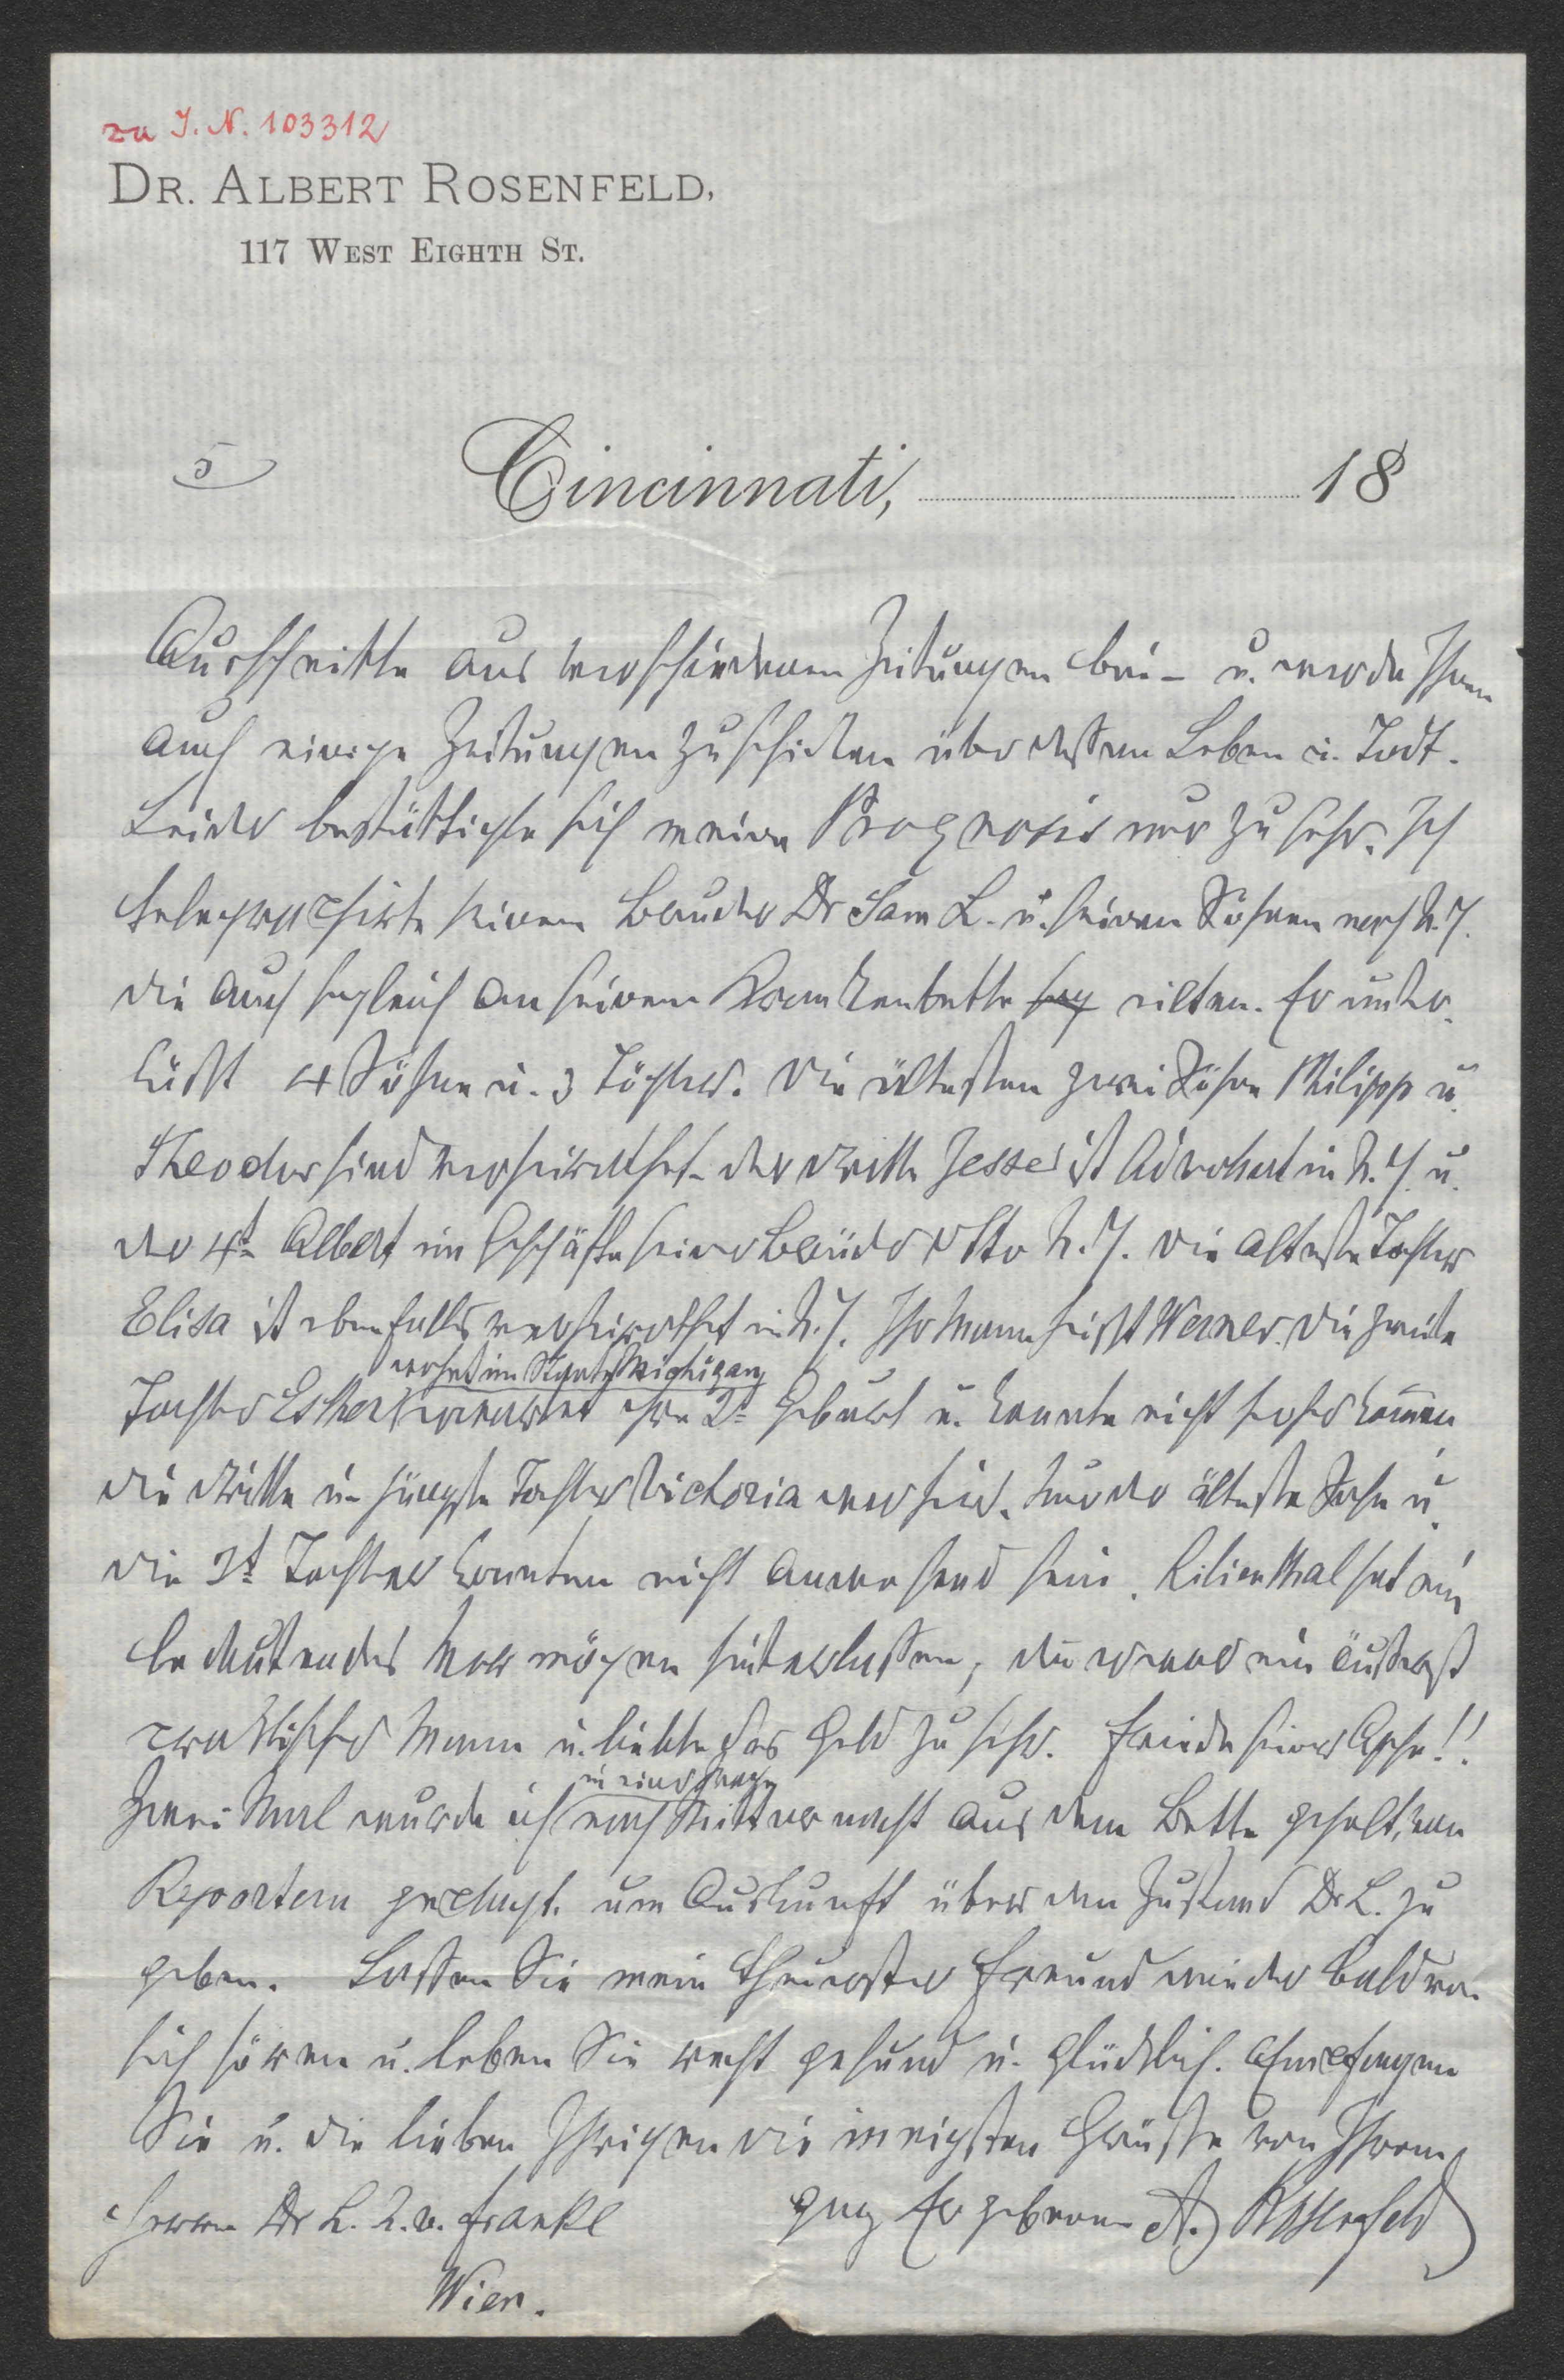 zu I. N. 103312
DR. ALBERT ROSENFELD,
117 WEST EIGHTH ST.
5
Cincinnati, 18
Ausschnitte aus verschiedenen Zeitungen bei – u. werde Ihnen
auch einige Zeitungen zuschicken über dessen Leben u. Todt.
Leider bestättigte sich meine Prognosis nur zu sehr. Ich
telegraphirte seinem Bruder Dr Sam L. u. seinen Söhnen nach N. Y.
die auch sogleich an seinem Krankenbette eilten. Er hinter-
läßt 4 Söhne u. 3 Töchter. Die ältesten zwei Söhne Philipp u.
Theodor sind verheirathet – der dritte Jesse ist Advokat in N. Y. u.
der 4t Albert im Geschäfte seiner Brüder N. Y. Die älteste Tochter
Elisa ist ebenfalls verheirathet in N. Y. Ihr Mann heißt Werner. Die zweite
wohnt im Staate Michigan
Tochter Esther erwartet ihre 2te Geburt u. konnte nicht hieher kommen
die dritte u. jüngste Tochter Victoria war hier. Nur der älteste Sohn u.
die 2t Tochter konnten nicht anwesend sein. Lilienthal hat ein
bedeutendes Vermögen hinterlassen, denn er war ein äußerst
praktischer Mann u. liebte das Geld zu sehr. Friede seiner Asche!!
in einer Woche
Zwei Mal wurde ich nach Mitternacht aus dem Bette geholt, von
Reportern geplagt um Auskunft über den Zustand Dr L. zu
geben. Lassen Sie mein theuerster Freund wieder bald von
sich hören u. leben Sie recht gesund u. glücklich. Empfangen
Sie u. die lieben Ihrigen die innigsten Grüße von Ihrem
Herrn Dr L. A. v. Frankl ganz Ergebenen A. Rosenfeld
Wien.